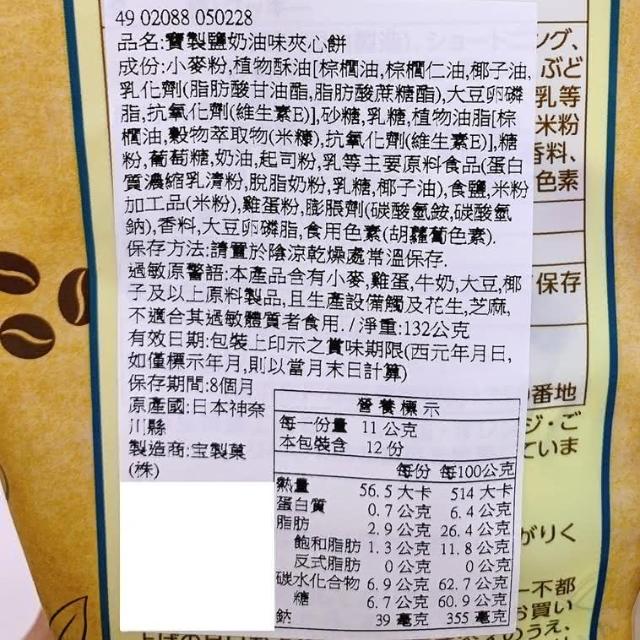 49 02088 050228
品名:寶製鹽奶油味夾心餅
成份:小麥粉,植物酥油[棕櫚油,棕櫚仁油,椰子油,
乳化劑(脂肪酸甘油酯,脂肪酸蔗糖酯),大豆卵磷
脂,抗氧化劑(維生素E)],砂糖,乳糖,植物油脂[棕
櫚油,穀物萃取物(米糠),抗氧化劑(維生素E)],糖
粉,葡萄糖,奶油,起司粉,乳等主要原料食品(蛋白
質濃縮乳清粉,脫脂奶粉,乳糖,椰子油),食鹽,米粉
加工品(米粉),雞蛋粉,膨脹劑(碳酸氫銨,碳酸氫
鈉),香料,大豆卵磷脂,食用色素(胡蘿蔔色素).
保存方法:請置於陰涼乾燥處常溫保存.
過敏原警語:本產品含有小麥,雞蛋,牛奶,大豆,椰
子及以上原料製品,且生產設備觸及花生,芝麻,
不適合其過敏體質者食用./淨重:132公克
有效日期:包裝上印示之賞味期限(西元年月日,
如僅標示年月,則以當月末日計算)
保存期間:8個月
原產國:日本神奈
川縣
製造商:宝製菓
(株)
營養標示
每一份量 11 公克
本包裝含 12 份
每份 每100公克
熱量 56.5 大卡 514 大卡
蛋白質 0.7 公克 6.4 公克
脂肪 2.9 公克 26.4 公克
飽和脂肪 1.3 公克 11.8 公克
反式脂肪 0 公克 0 公克
碳水化合物 6.9 公克 62.7 公克
糖 6.7 公克 60.9 公克
鈉 39 毫克 355 毫克
ング、
ぶど
乳等
米粉
香料、
色素
保存
番地
ジ・ご
ていま
がりく
一不都
お買い
うえ、